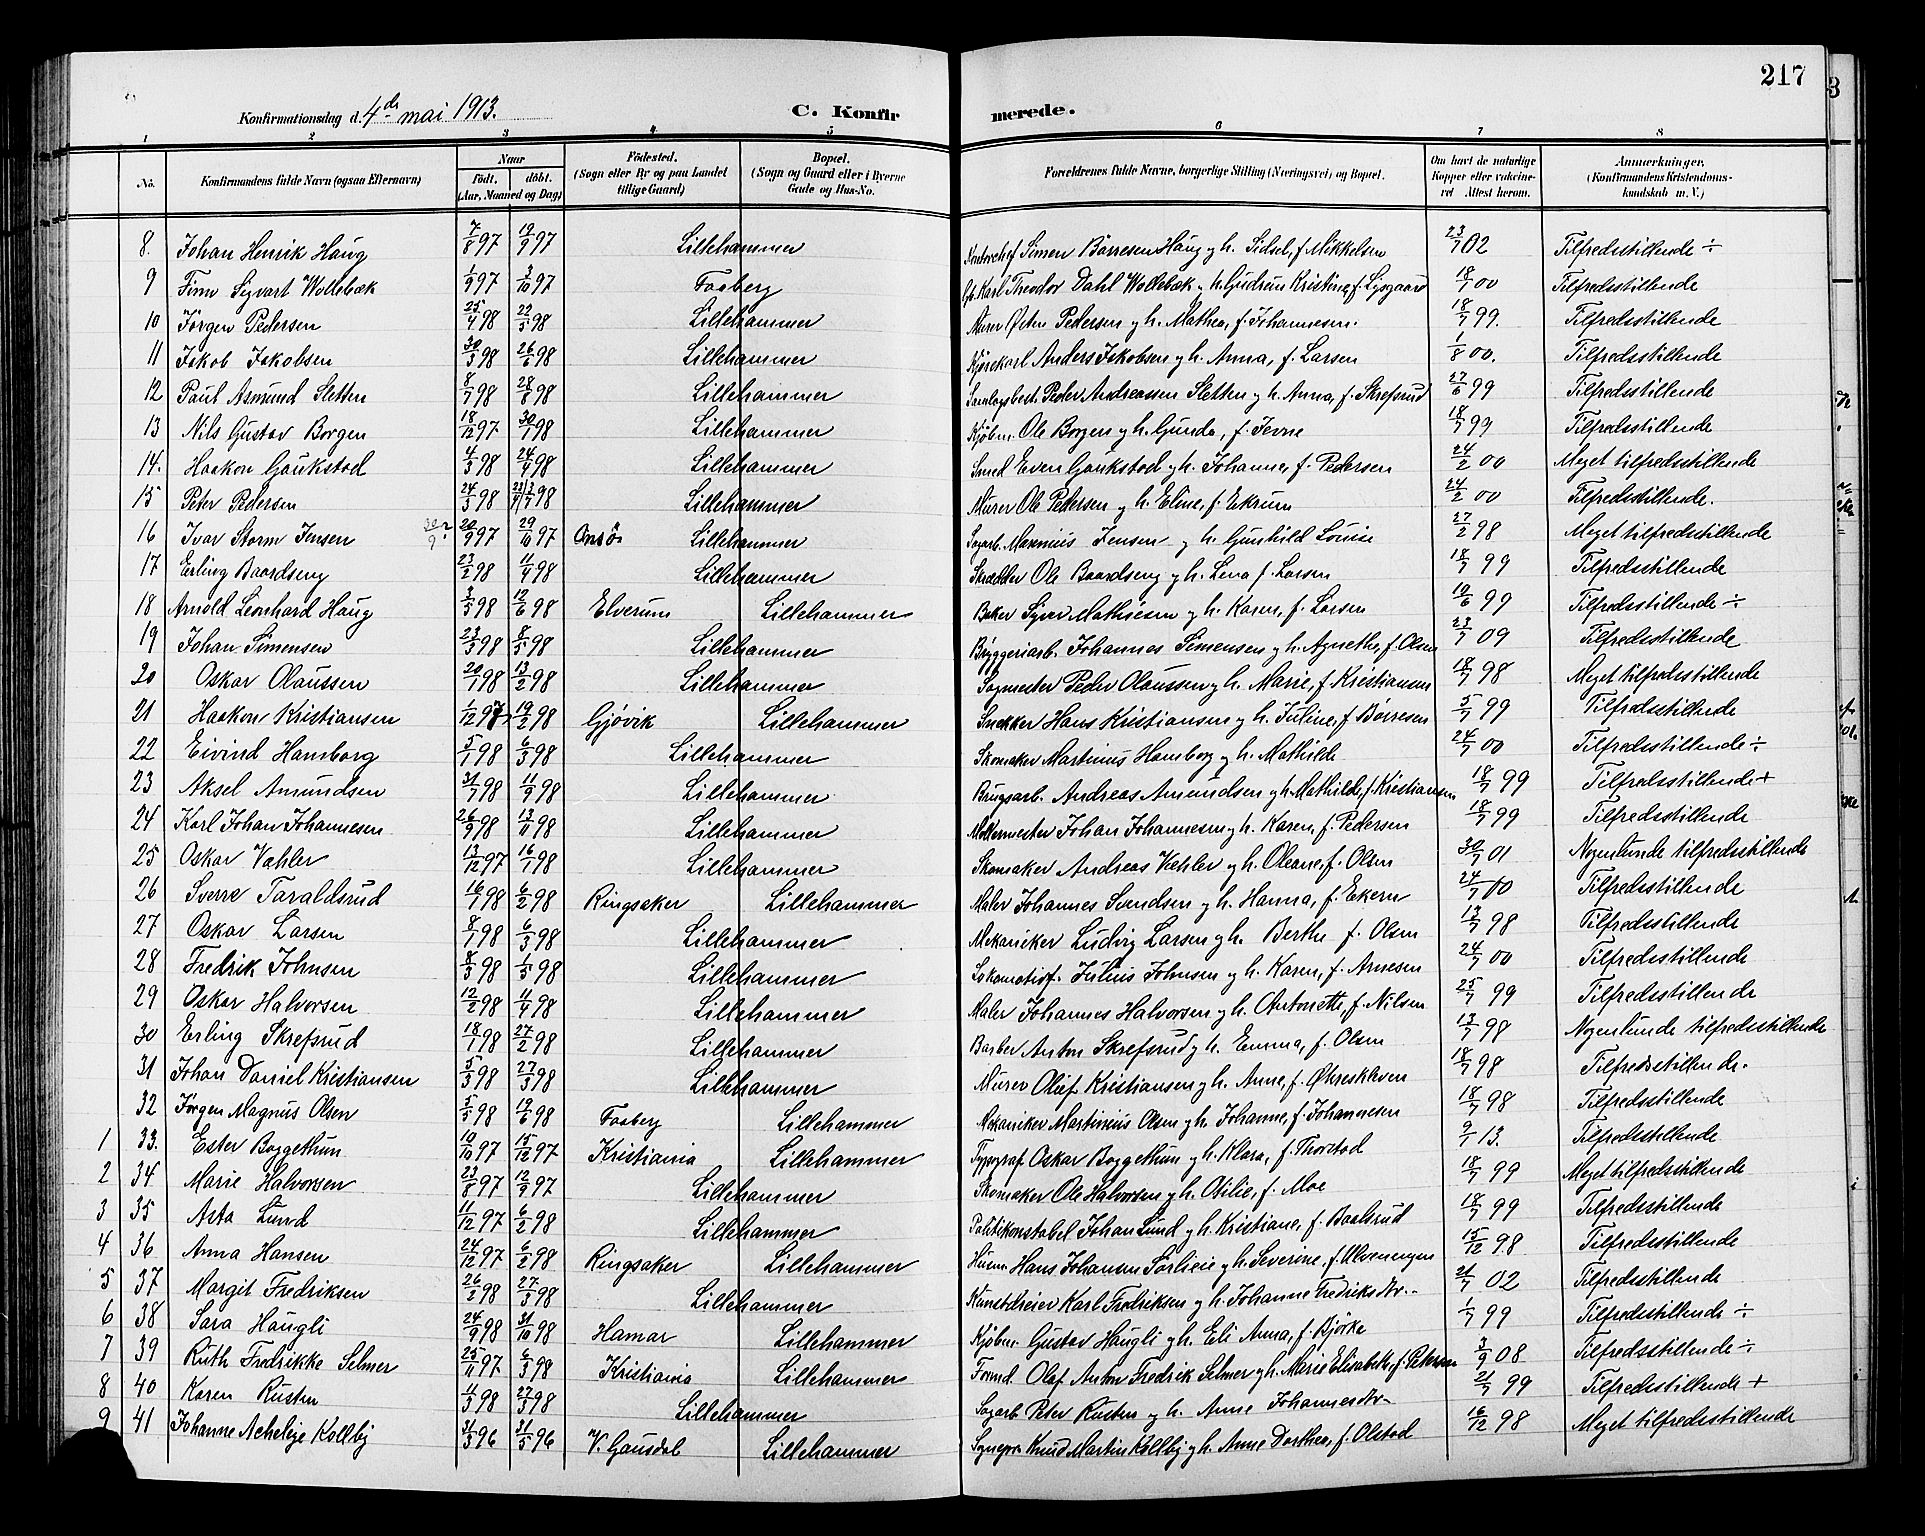 217
Konfirmationsdag d. 4de mai 1913. C. Konfirmerede.
1 2 3 4 5 6 7 8
No. Konfirmandens fulde Navn (ogsaa Efternavn) Naar födt. döbt. (Aar, Maaned og Dag) Födested. (Sogn eller By og paa Landet tillige Gaard) Bopæl. (Sogn og Gaard eller i Byerne Gade og Hus-No. Forældrenes fulde Navne, borgerlige Stilling (Næringsvei) og Bopæl. Om havt de naturlige Kopper eller vakcineret Attest herom. Anmærkninger. (Konfirmandens Kristendomskundskab m. V.)
8. Johan Henrik Haug 7/8 97 19/9 97 Lillehammer Kontorchef Simen Børresen Haug g h. Sidsel, f. Mikkelsen 23/7 02 Tilfredsstillende ÷
9 Finn Sigvart Wollebæk 1/9 97 3/10 97 Faaberg Karl Theodor Dahl Wollebæk g h. Gudrun Kristine, f. Lysgaard 18/7 00 Tilfredsstillende
10 Jørgen Pedersen 25/4 98 22/5 98 Lillehammer Murer Østen Pedersen g h. Mathea, f. Johannesen. 18/7 99. Tilfredsstillende
11 Jakob Jakobsen 30/3 98 26/6 98 Lillehammer Kjørekarl Anders Jakobsen g h. Anna, f. Larsen 1/8 00. Tilfredsstillende
12 Paul Asmund Sletten 8/7 98 28/8 98 Lillehammer Samlagsbest. Peder Andreassen Sletten g h. Anna, f. Skrefsrud 27/6 99 Tilfredsstillende
13 Nils Gustav Borgen 18/12 97 30/1 98 Lillehammer Kjøbm. Ole Borgen g h. Gunda, f. Jevne 18/7 99 Tilfredsstillende
14. Haakon Gaukstad 4/3 98 24/4 98 Lillehammer Smed Even Gaukstad g h. Johanne, f. Pedersen 24/2 00 Meget tilfredsstillende
15 Peter Pedersen 24/3 98 98 Lillehammer Murer Ole Pedersen g h. Eline, f. Ekrum 24/2 00 Tilfredsstillende.
16 Ivar Storm Jensen 30/9 ? 20/9 97 29/10 97 Onsö Lillehammer Sagarb. Maximius Jensen g h. Gunhild Louise 27/2 98 Meget tilfredsstillende
17 Erling Baardseng 23/2 98 11/4 98 Lillehammer Skrædder Ole Baardseng g h. Lena f. Larsen 18/7 99 Tilfredsstillende
18 Arnold Leonhard Haug 3/5 98 12/6 98 Elverum Lillehammer Baker Syver Mathiesen g h. Karen, f. Larsen 19/6 99 Tilfredsstillende ÷
19 Johan Simensen 23/3 98 8/5 98 Lillehammer Bryggeriarb. Johannes Simensen g h. Agnethe, f. Olsen 23/7 09 Tilfredsstillende
20 Oskar Olaussen 20/1 98 13/2 98 Lillehammer Sagmester Peder Olaussen g h. Marie, f. Kristiansen 18/7 98 Meget tilfredsstillende
21 Haakon Kristiansen 1/12 97 19/2 98 Gjøvik Lillehammer Snekker Hans Kristiansen g h. Juline, f. Børresen 5/7 99 Tilfredsstillende
22 Eivind Hamborg 5/1 98 6/3 98 Lillehammer Skomaker Martinus Hamborg g h. Mathilde 24/7 00 Tilfredsstillende ÷
23 Aksel Amundsen 31/7 98 11/9 98 Lillehammer Brugsarb. Andreas Amundsen g h. Mathilde, f. Kristiansen 18/7 99 Tilfredsstillende +
24 Karl Johan Johannesen 26/9 98 13/11 98 Lillehammer Møllermester Johan Johannesen g h. Karen, f. Pedersen 18/7 99 Tilfredsstillende
25 Oskar Væhler 13/12 97 16/1 98 Lillehammer Skomaker Andreas Væhler g h. Oleane, f. Olsen 30/7 01 Nogenlunde tilfredsstillende
26 Sverre Taraldsrud 16/1 98 6/2 98 Ringsaker Lillehammer Maler Johannes Svendsen g h. Hanna, f. Ekern 24/7 00 Tilfredsstillende
27 Oskar Larsen 8/1 98 6/3 98 Lillehammer Mekaniker Ludvig Larsen g h. Berthe f. Olsen 13/7 98 Tilfredsstillende
28 Fredrik Johnsen 8/3 98 1/5 98 Lillehammer Lokomotivf. Julius Johnsen g h. Karen, f. Arnesen 24/7 00 Tilfredsstillende
29 Oskar Halvorsen 12/2 98 11/4 98 Lillehammer Maler Johannes Halvorsen g h. Antonette, f. Nilsen 25/7 99 Tilfredsstillende
30 Erling Skrefsrud 18/1 98 27/2 98 Lillehammer Barber Anton Skrefsrud g h. Emma, f. Olsen 13/7 98 Nogenlunde tilfredsstillende
31 Johan Daniel Kristiansen 5/3 98 27/3 98 Lillehammer Murer Olaf Kristiansen g h. Anne, f. Øhreskleven 18/7 98 Tilfredsstillende.
32 Jørgen Magnus Olsen 5/5 98 19/6 98 Faaberg Lillehammer Mekaniker Martinius Olsen g h. Johanne, f. Johannesen 18/7 98 Tilfredsstillende
1 33. Ester Baggethun 10/10 97 15/12 97 Kristiania Lillehammer Typograf Oskar Baggethun g h. Klara, f. Thorstad 9/1 13. Tilfredsstillende
2 34 Marie Halvorsen 23/8 97 12/9 97 Lillehammer Skomaker Ole Halvorsen g h. Otilie, f. Moe 18/7 99 Meget tilfredsstillende
3 35 Asta Lund 11/12 97 6/2 98 Lillehammer Politikonstabel Johan Lund g h. Kristiane, f. Baalsrud 18/7 99 Tilfredsstillende
4 36 Anna Hansen 24/12 97 6/2 98 Ringsaker Lillehammer Husm. Hans Johansen Sørlieie g h. Severine, f. Ulvenengen 15/12 98 Tilfredsstillende
5 37 Margit Fredriksen 26/2 98 27/3 98 Lillehammer Kunstdreier Karl Fredriksen g h. Johanne Fredriksdtr. 21/7 02 Tilfredsstillende
6 38 Sara Haugli 24/9 98 31/10 98 Hamar Lillehammer Kjøbm. Gustav Haugli g h. Eli Anna, f. Bjørke 1/7 99 Tilfredsstillende ÷
7 39 Ruth Fredrikke Selmer 25/11 97 6/3 98 Kristiania Lillehammer Formd. Olaf Anton Fredrik Selmer g h. Marie Elisabeth, f. Petersen 3/9 08 Tilfredsstillende ÷
8 40 Karen Rusten 4/3 98 27/3 98 Lillehammer Sagarb. Peter Rusten g h. Anne Johannesdtr 21/7 99 Tilfredsstillende +
9 41 Johanne Acheleje Kollbj 31/3 96 31/5 96 V. Gausdal Lillehammer Sognepr. Knud Martin Kollbj g h. Anne Dorthea, f. Olstad 16/12 98 Meget tilfredsstillende